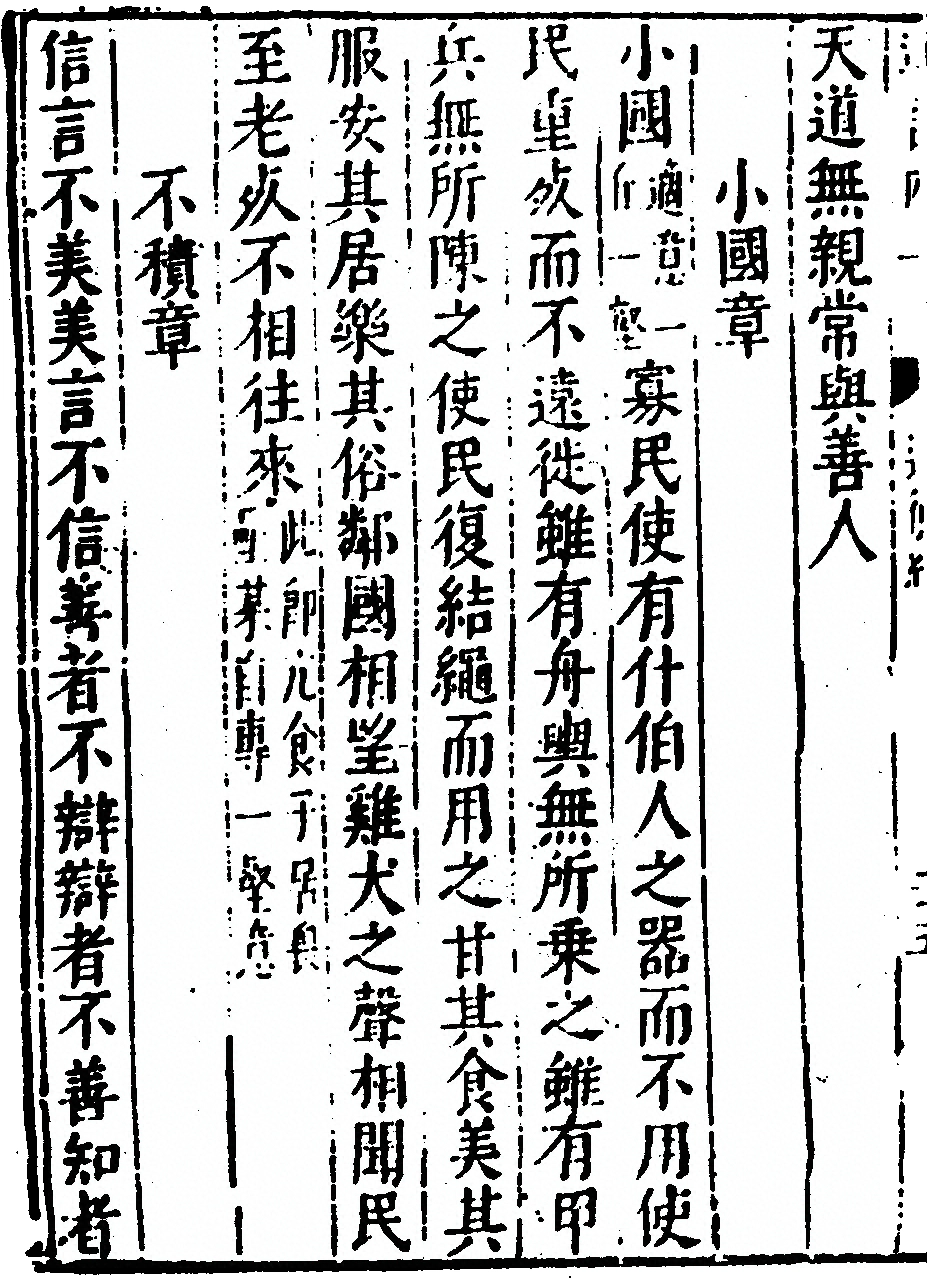 天道無親常與善人
小國章
小國適意一寡民使有什伯人之器而不用使
民重死而不遠徙雖有舟輿無所乗之雖有甲
兵無所陳之使民復結繩而用之甘其食美其
服安其居樂其俗鄰國相望雞犬之聲相聞民
至老死不相往來此即
不積章
信言不美美言不信善者不辯辯者不善知者